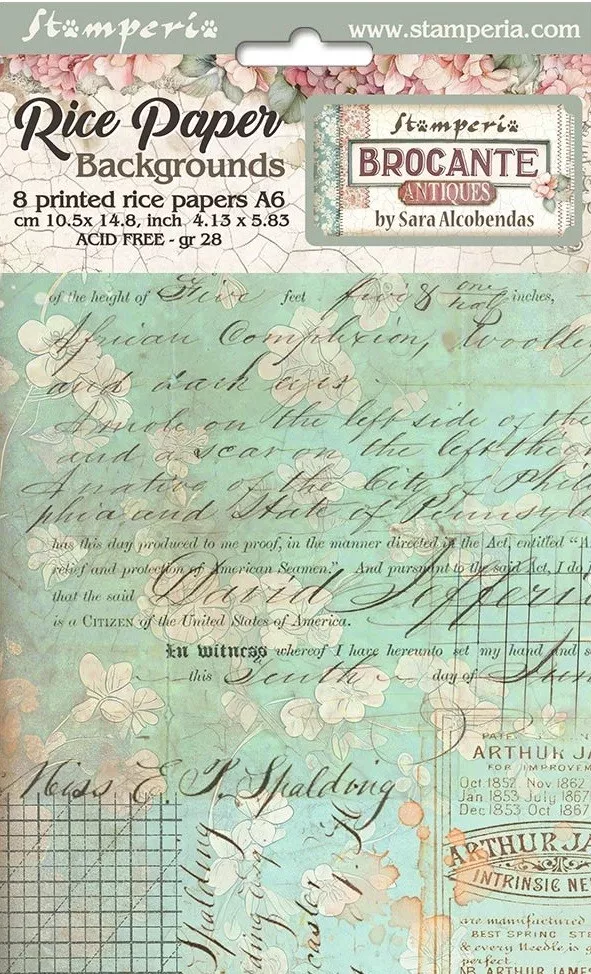 Stamperia
www.stamperia.com
Rice Paper
Backgrounds
8 printed rice papers A6
cm 10.5x 14.8, inch 4.13 x 5.83
ACID FREE - gr 28
Stamperia
BROCANTE
ANTIQUES
by Sara Alcobendas
of the height of Five feet five & one half inches,
African Complexion, Woolly
and dark eyes
A mole on the left side of the
and a scar on the left
A native of the City of Phil
phia and State of Pennsylv
has this day produced to me proof, in the manner directed in the Act, entitled "A
relief and protection of American Seamen." And pursuant to the said Act, I do
that the said David
is a CITIZEN of the United States of America.
In witness whereof I have hereunto set my hand and s
this Tenth day of
Miss E. P. Spalding
Spalding
PATE
ARTHUR JA
FOR IMPROVEM
Oct 1852 Nov 1862
Jan 1853 July 1867
Dec 1853 Oct 1867
ARTHUR JA
INTRINSIC NE
are manufactured
BEST SPRING STE
& every Needle is g
perfect.
NB ARTHUR JAMES